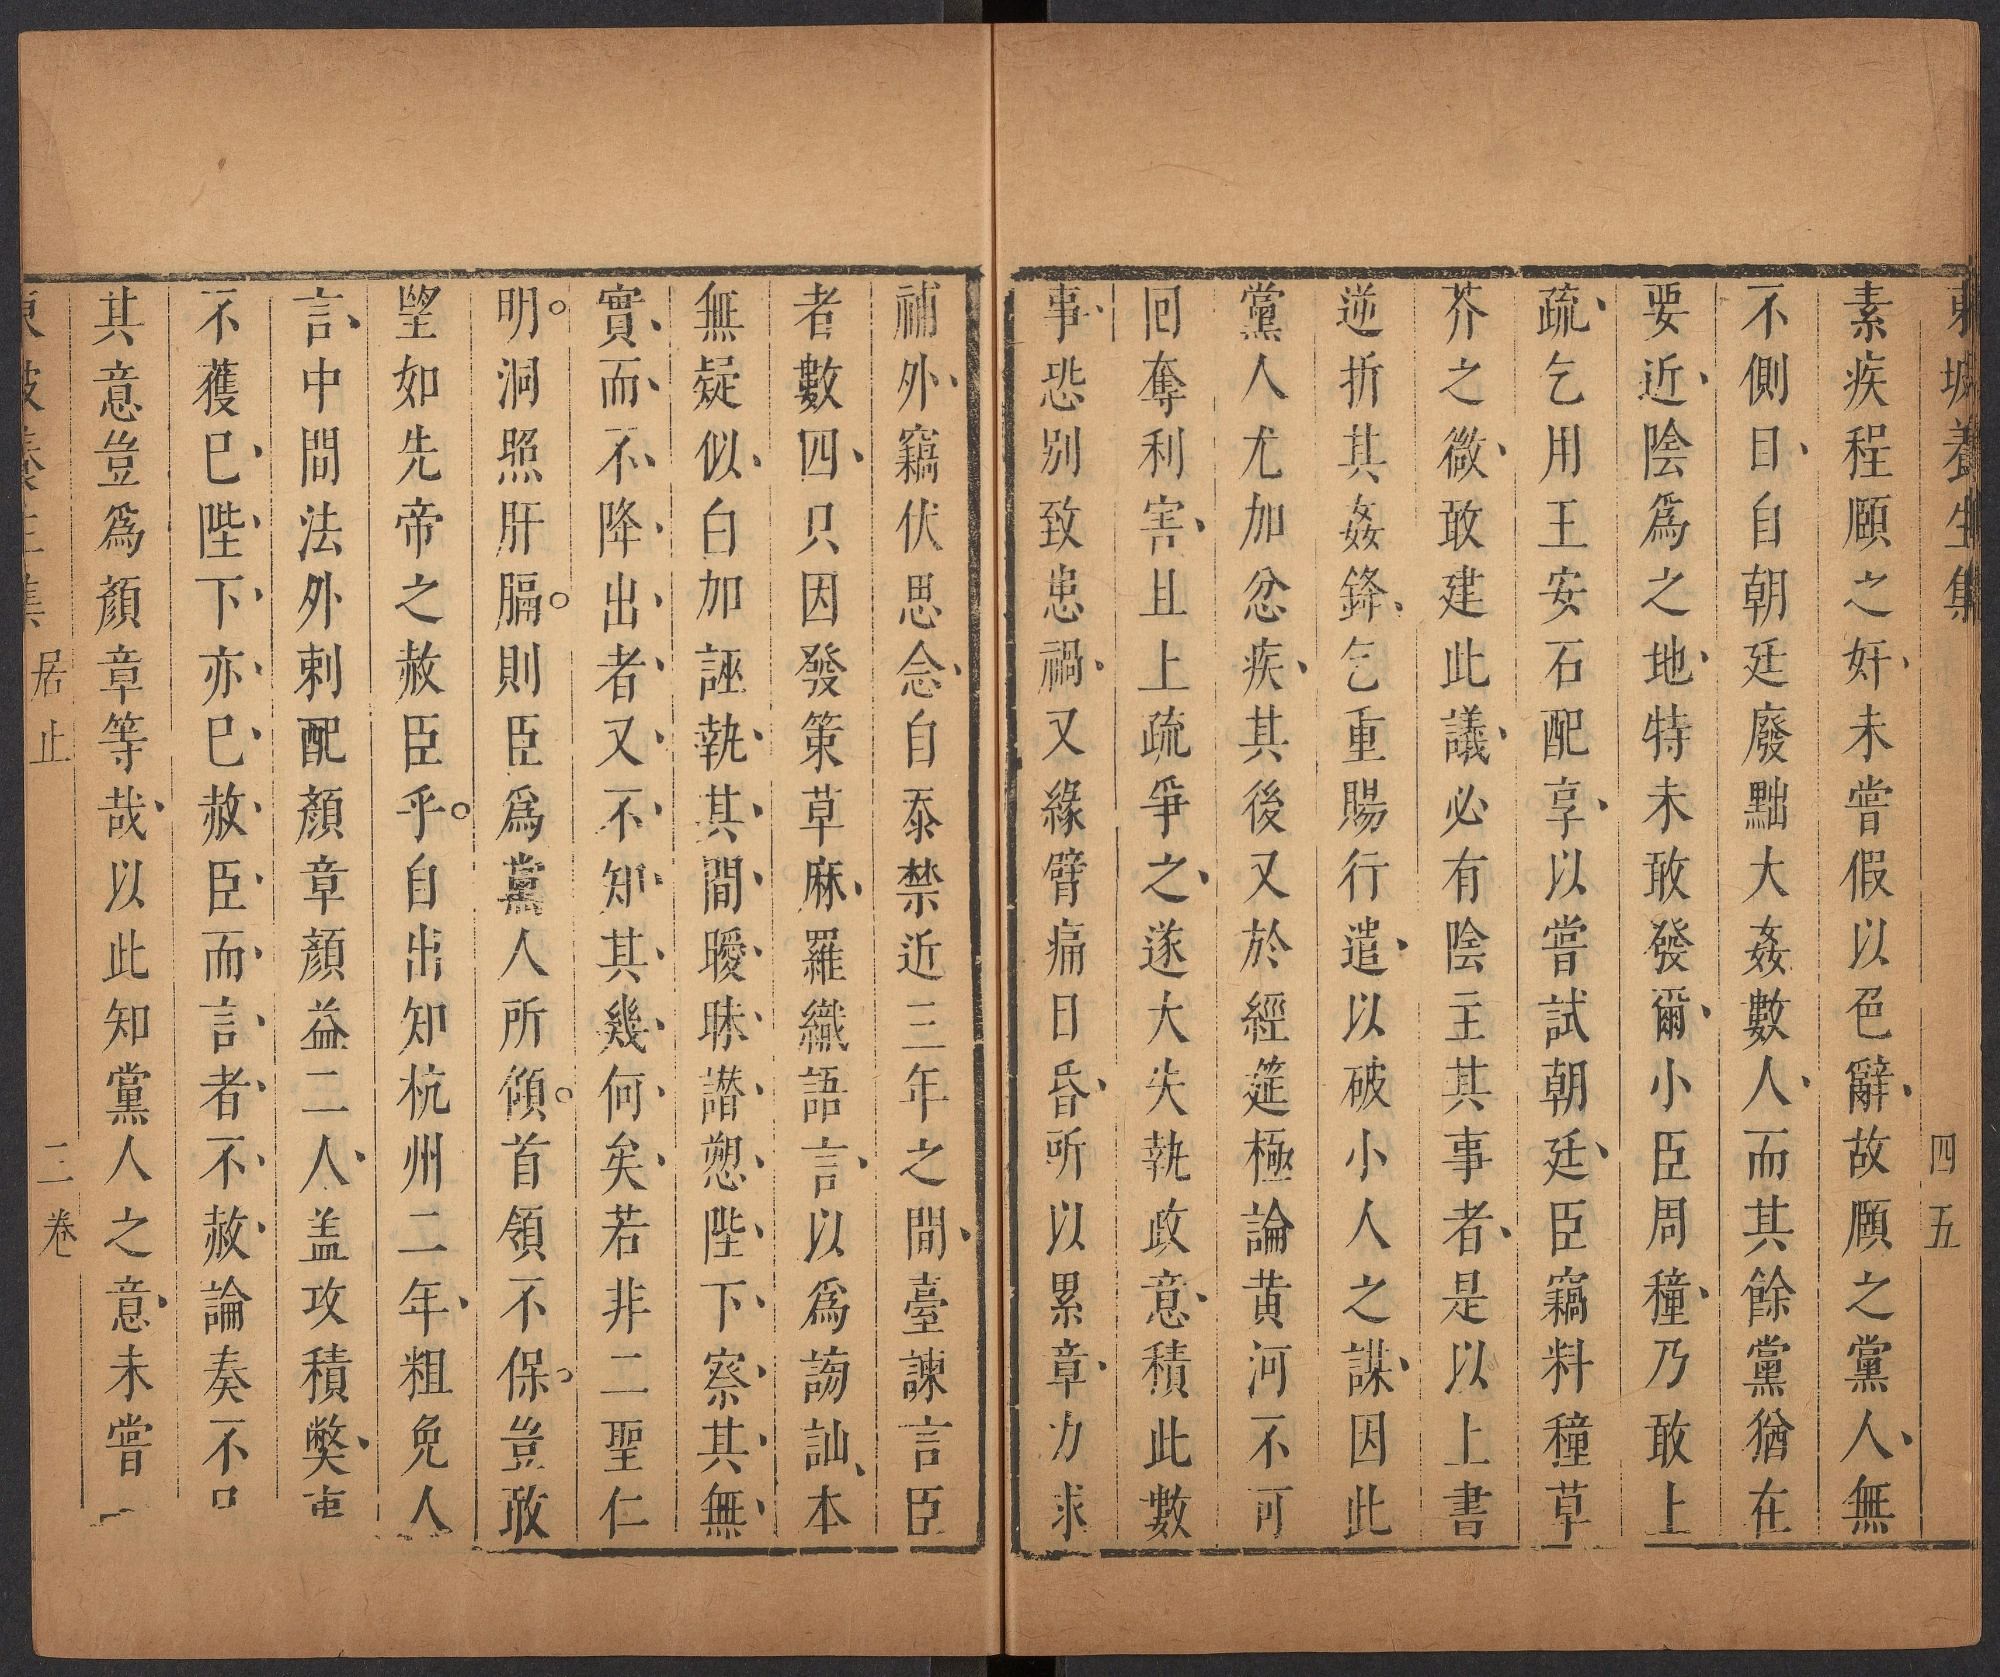 東坡養生集 四五
素疾程頤之奸未嘗假以色辭故頤之黨人無
不側目自朝廷廢黜大姦數人而其餘黨猶在
要近陰爲之地特未敢發爾小臣周穜乃敢上
疏乞用王安石配享以嘗試朝廷臣竊料穜草
芥之微敢建此議必有陰主其事者是以上書
逆折其姦鋒乞重賜行遣以破小人之謀因此
黨人尤加忿疾其後又於經筵極論黄河不可
回奪利害且上疏爭之遂大失執政意積此數
事恐别致患禍又緣臂痛目昏所以累章力求
補外竊伏思念自忝禁近三年之間臺諫言臣
者數四只因發策草麻羅織語言以爲謗訕本
無疑似白加誣執其間曖昧譖愬陛下察其無
實而不降出者又不知其幾何矣若非二聖仁
明洞照肝膈則臣爲黨人所傾首領不保豈敢
望如先帝之赦臣乎自出知杭州二年粗免人
言中間法外刺配顏章顏益二人盖攻積弊事
不獲已陛下亦已赦臣而言者不赦論奏不已
其意豈爲顏章等哉以此知黨人之意未嘗一
東坡養生集 居止 二卷